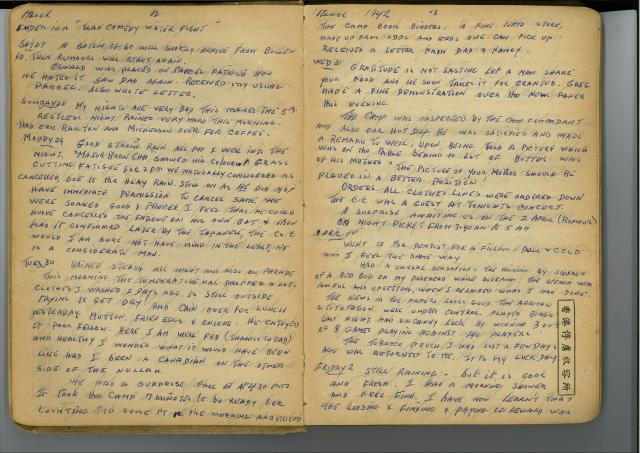 March 12
ENDED IN A "SLAP COMEDY WATER FIGHT"
SAT 27 A BATCH OF 60 WILL SHORTLY ARRIVE FROM BOWEN
RD. THEN RUMOURS WILL START AGAIN.
OSWALD WAS PLACED ON PARCEL FATIGUE HOW
HE HATED IT. SAW DAD AGAIN. RECEIVED MY USUAL
PARCEL. ALSO WROTE LETTER.
SUNDAY 28 MY NIGHTS ARE VERY BAD THIS MARKED THE 5TH
RESTLESS NIGHT. RAINED VERY HARD THIS MORNING.
HAD ERIC RAILTON AND MICKELSON OVER FOR COFFEE.
MONDAY 29 GOOD STRONG RAIN ALL PM & WELL INTO THE
NIGHT. MAJOR BOON CMP. SHOWED HIS COLOUR. A GRASS
CUTTING FATIGUE FOR 2 PM WE NATURALLY CONSIDERED AS
CANCELLED DUE TO THE HEAVY RAIN. STILL ON AS HE DID NOT
HAVE IMMEDIATE PERMISSION TO CANCEL SAME. WE
WERE SOAKED GOOD & PROPER I FEEL THAT HE COULD
HAVE CANCELLED THE FATIGUE ON HIS OWN BAT & THEN
HAD IT CONFIRMED LATER BY THE JAPANESE, THE C of C
WOULD I AM SURE NOT HAVE MIND IN THE LEAST, HE
IS A CONSIDERATE MAN.
TUES 30 RAINED STEADY ALL NIGHT AND ALSO ON PARADE
THIS MORNING. THE TEMPERATURE HAS DROPPED A LOT.
CLOTHES I WASHED 2 DAYS AGO IS STILL OUTSIDE
TRYING TO GET DRY. HAD CAIN OVER FOR LUNCH
YESTERDAY. MUTTON, FRIED EGGS & ONIONS. HE ENJOYED
IT POOR FELLOW. HERE I AM WELL FED (THANKS TO DAD)
AND HEALTHY I WONDER WHAT IT WOULD HAVE BEEN
LIKE HAD I BEEN A CANADIAN ON THE OTHER
SIDE OF THE NULLAH.
WE HAD A SURPRISE FALL IN AT 4.30 PM
IT TOOK THE CAMP 7 MINUTES TO BE READY FOR
COUNTING DID SOME PT IN THE MORNING AND VISITED
March 1942 13
THE CAMP BOOK BINDERS, A FINE LITTLE STORE,
MADE UP FROM ODDS AND ENDS ONE CAN PICK UP.
RECEIVED A LETTER FROM DAD & NANCY.
WED 31 GRATITUDE IS NOT LASTING LET A MAN SHARE
YOUR FOOD AND HE SOON TAKES IT FOR GRANTED. GREG
MADE A FINE DEMONSTRATION OVER THE NEWS PAPER
THIS EVENING.
THE CAMP WAS INSPECTED BY THE CAMP COMMDANT
AND ALSO OUR HUT DEP. HE WAS SATISFIED AND MADE
A REMARK TO WELL, UPON BEING TOLD A PICTURE WHICH
WAS ON THE TABLE BEHIND A LOT OF BOTTLES WAS
OF HIS MOTHER "THE PICTURE OF YOUR MOTHER SHOULD BE
PLACED IN A BETTER POSITION".
ORDERS. ALL CLOTHES LINES WERE ORDERED DOWN
THE C.C WAS A GUEST AT TONIGHT'S CONCERT.
A SURPRISE AWAITING US ON THE 2 APRIL (RUMOUR)
ON NIGHT PICKET FROM 3.40 AM TO 5 AM
APRIL 1ST
WENT TO THE DENTIST FOR A FILLING. DULL & COLD
AND I FEEL THE SAME WAY
HAD A UNUSUAL SENSATION - THE KILLING BY SQUASH
OF A BED BUG ON MY FOREHEAD WHILE SLEEPING. THE STENCH WAS
AWFUL AND UPSETTING, WHEN I REALIZED WHAT I HAD DONE.
THE NEWS IN THE PAPERS LOOKS GOOD. THE AFRICAN
SITUATION WELL UNDER CONTROL. PLAYED BINGO
LAST NIGHT, HAD UNCANNY LUCK BY WINNING 3 OUT
OF 8 GAMES PLAYING AGAINST PLAYERS.
THE TOBACCO POUCH I HAD LOST A FEW DAYS
AGO WAS RETURNED TO ME. IT IS MY LUCKY DAY.
FRIDAY 2 STILL RAINING - BUT IT IS COOL
AND FRESH. I HAD A MORNING SHOWER
AND FEEL FINE. I HAVE NOW LEARNT THAT
THE LOOSING & FINDING & PAYING OF REWARD WAS
香港俘虜收容所